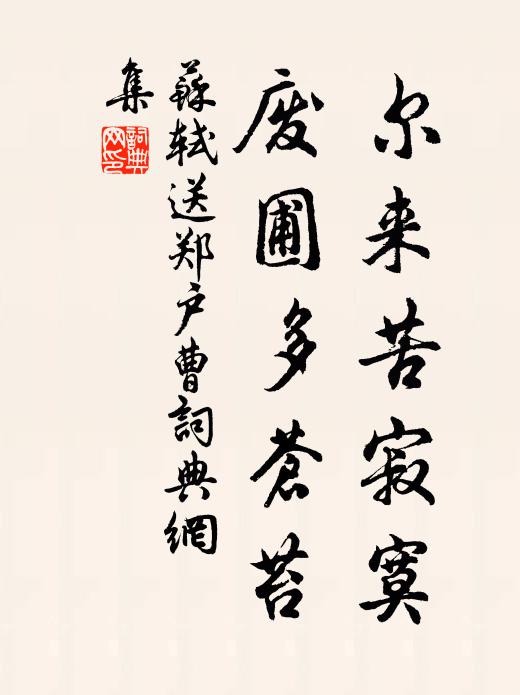 尔来苦寂寞
废圃多苍苔
苏轼送郑户曹詞典網
集
詞典網印